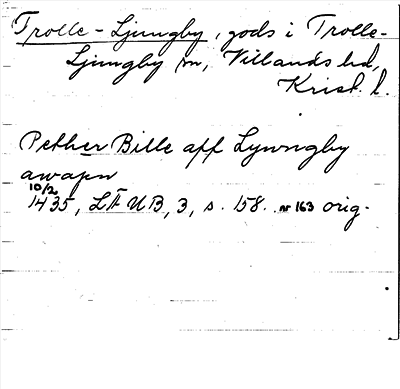 Trolle-Ljungby, gods i Trolle-
Ljungby sn, Villands hd,
Krist. l.
Pether Bille aff Lywngby
awapn
10/2
1435, LÄUB, 3, s. 158. nr 163 orig.